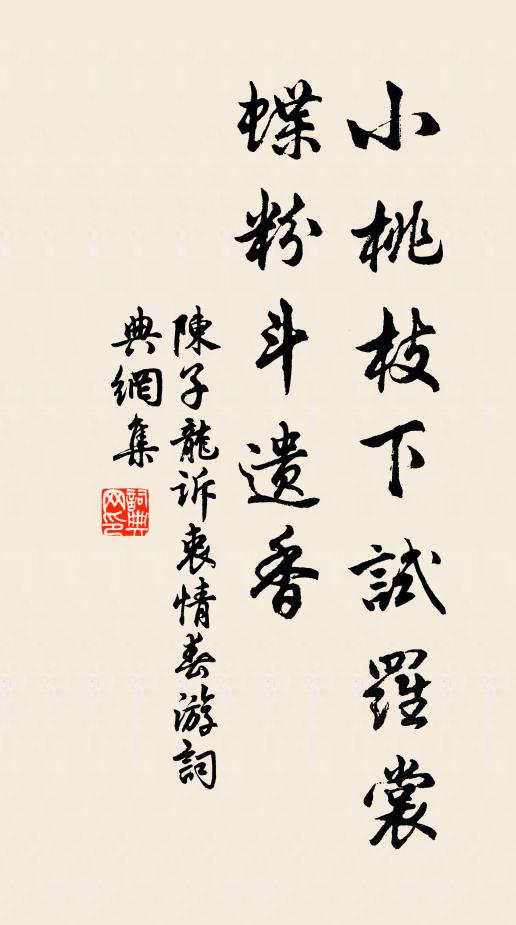 小桃枝下試羅裳
蝶粉斗遺香
陳子龍訴衷情春游詞
典網集
詞典
网印